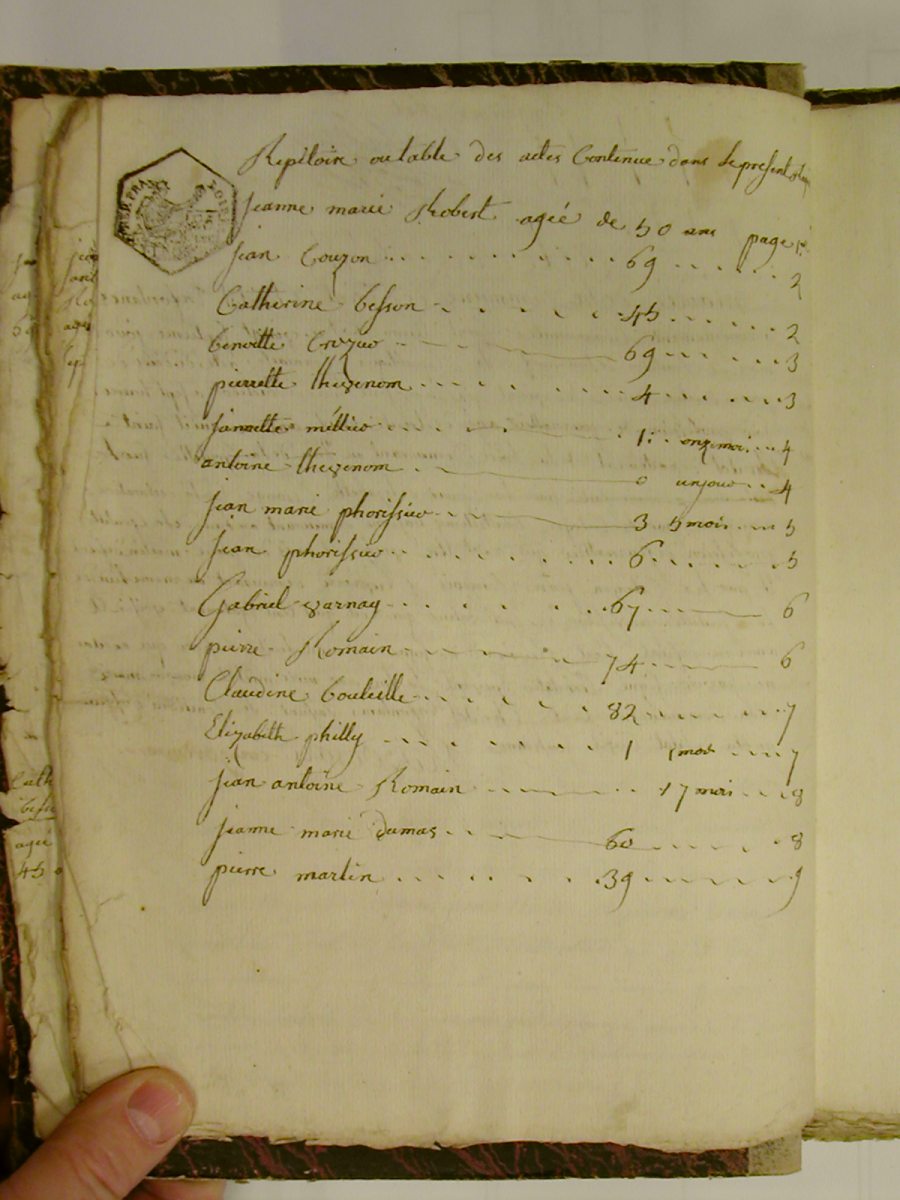 Repitoire ou table des actes Contenue dans le present
jeanne marie Robert agéé de 50 ans page 1er
jean Couzon 69 2
Catherine besson 45 2
benoitte Crozier 69 3
pierrette thevenom 4 3
janette méllier 1: onze mois 4
antoine thevenom 0 un jour 4
jean marie phorissier 3 5 mois 5
jean phorissier 6 5
Gabriel varnay 67 6
pierre Romain 74 6
Claudine bouteille 82 7
Elizabeth philly 1 mois 7
jean antoine Romain 17 mois 8
jeanne marie dumas 60 8
pierre martin 39 9
Cath
besso
agéé
45